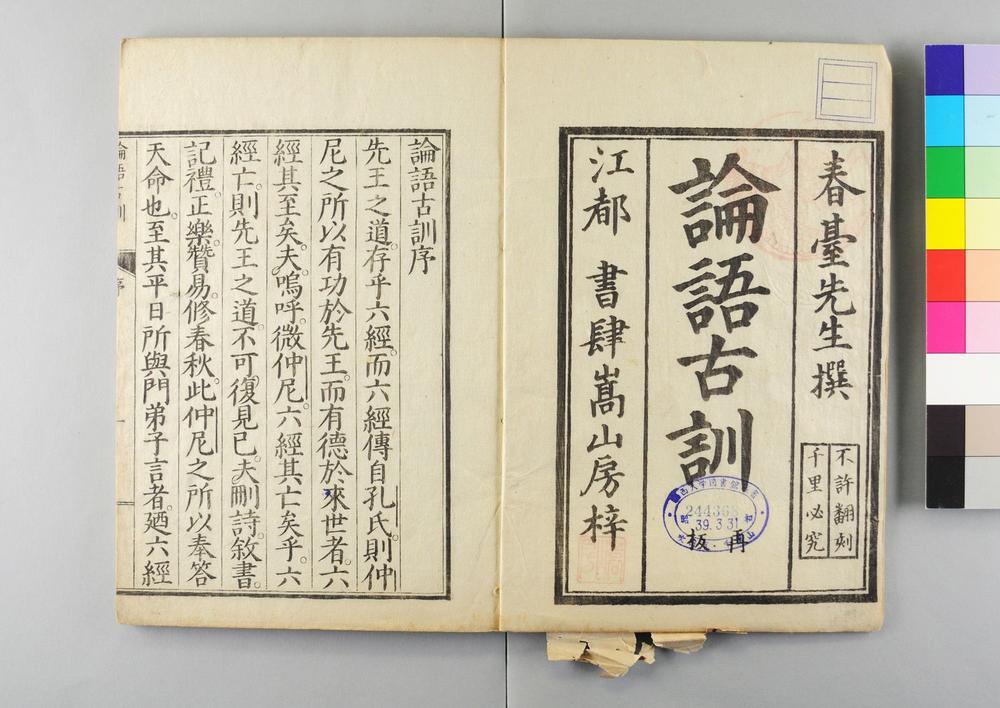 春臺先生撰
不許翻刻
千里必究
論語古訓
再板
江都 書肆嵩山房梓
244368
39.3.31
論語古訓序
先王之道。存乎六經。而六經傳自孔氏。則仲
尼之所以有功於先王。而有德於來世者。六
經其至矣夫。嗚呼。微仲尼。六經其亡矣乎。六
經亡。則先王之道。不可復見已。夫刪詩。敘書。
記禮。正樂。贊易。修春秋。此仲尼之所以奉答
天命也。至其平日所與門弟子言者。廼六經
論語古訓 序 一